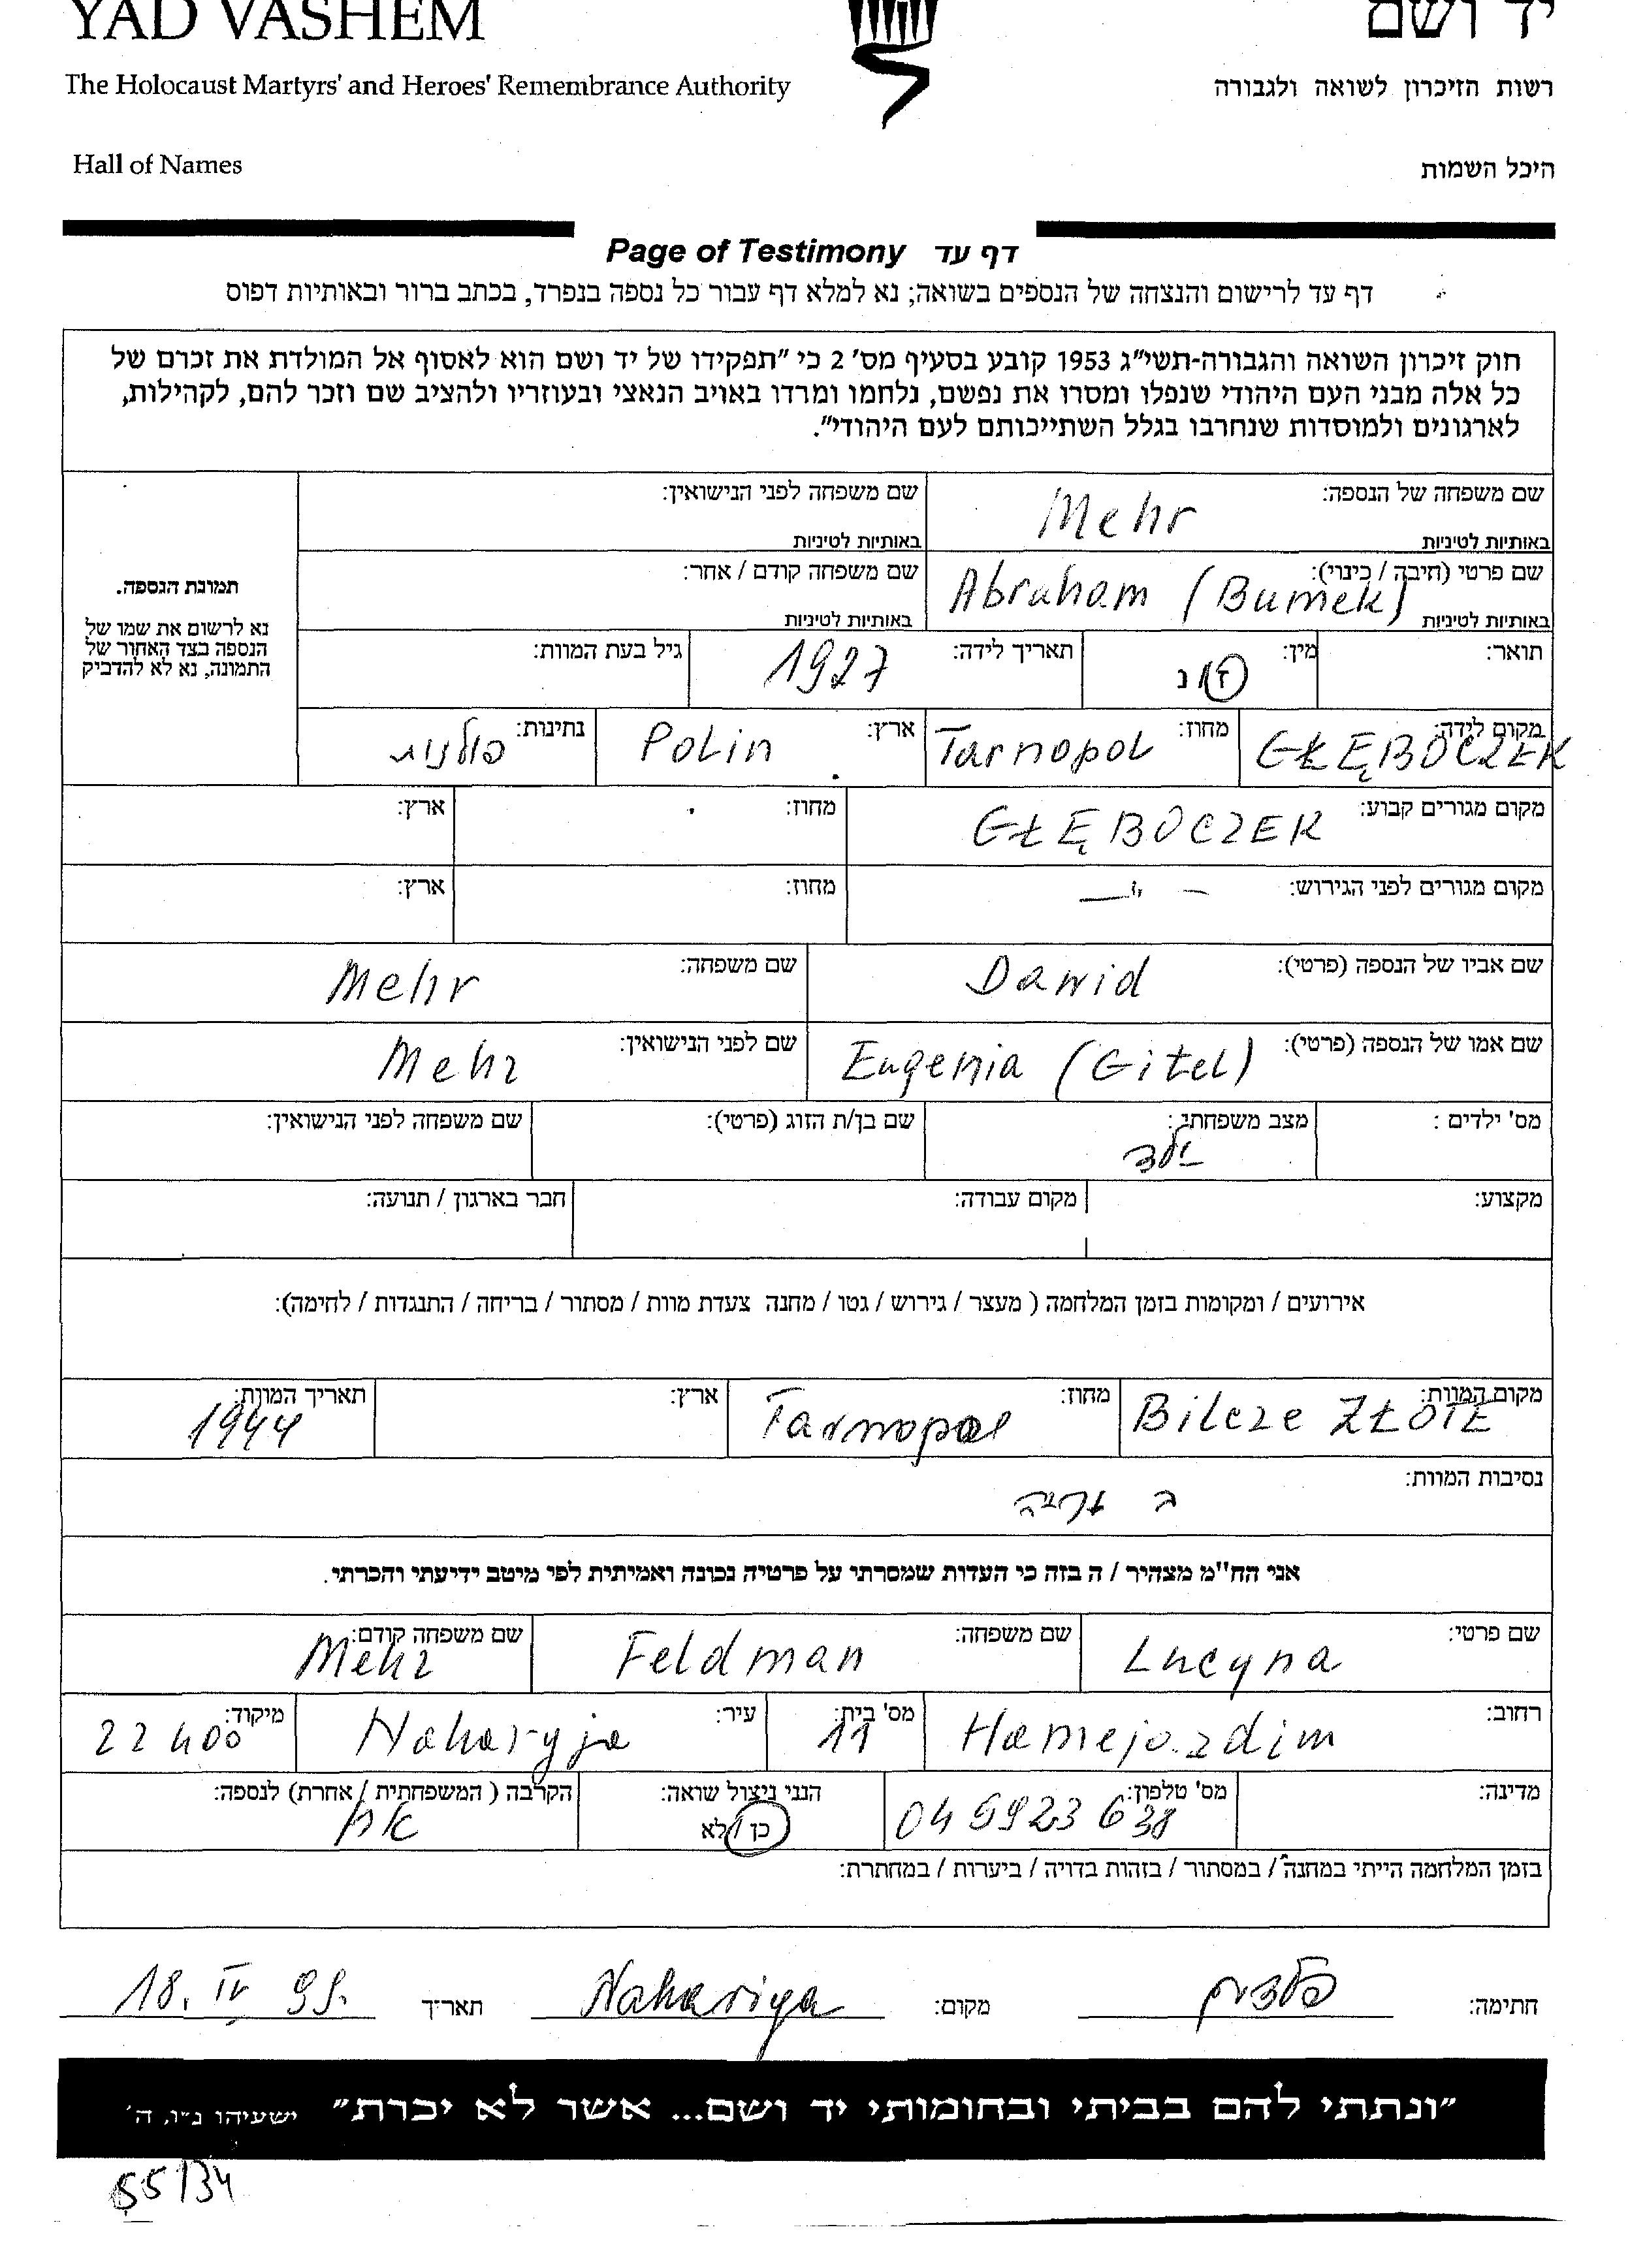 YAD VASHEM יד ושם
The Holocaust Martyrs' and Heroes' Remembrance Authority רשות הזיכרון לשואה ולגבורה
Hall of Names היכל השמות
Page of Testimony דף עד
דף עד לרישום והנצחה של הנספים בשואה; נא למלא דף עבור כל נספה בנפרד, בכתב ברור ובאותיות דפוס
חוק זיכרון השואה והגבורה-תשי"ג 1953 קובע בסעיף מס' 2 כי "תפקידו של יד ושם הוא לאסוף אל המולדת את זכרם של
כל אלה מבני העם היהודי שנפלו ומסרו את נפשם, נלחמו ומרדו באויב הנאצי ובעוזריו ולהציב שם וזכר להם, לקהילות,
לארגונים ולמוסדות שנחרבו בגלל השתייכותם לעם היהודי".
שם משפחה של הנספה: Mehr שם משפחה לפני הנישואין:
באותיות לטיניות באותיות לטיניות
שם פרטי (חיבה / כינוי): Abraham (Bumek) שם משפחה קודם / אחר:
באותיות לטיניות באותיות לטיניות
תמונת הנספה.
נא לרשום את שמו של
הנספה בצד האחור של
התמונה, נא לא להדביק
תואר: מין: ז/נ תאריך לידה: 1927 גיל בעת המוות:
מקום לידה: GŁĘBOCZEK מחוז: Tarnopol ארץ: Polin נתינות: פולנית
מקום מגורים קבוע: GŁĘBOCZEK מחוז: ארץ:
מקום מגורים לפני הגירוש: — " — מחוז: ארץ:
שם אביו של הנספה (פרטי): Dawid שם משפחה: Mehr
שם אמו של הנספה (פרטי): Eugenia (Gitel) שם לפני הנישואין: Mehr
מס' ילדים : מצב משפחתי : ילד שם בן/ת הזוג (פרטי): שם משפחה לפני הנישואין:
מקצוע: מקום עבודה: חבר בארגון / תנועה:
אירועים / ומקומות בזמן המלחמה ( מעצר / גירוש / גטו / מחנה צעדת מוות / מסתור / בריחה / התנגדות / לחימה):
מקום המוות: Bilcze ZŁOTE מחוז: Tarnopol ארץ: תאריך המוות: 1944
נסיבות המוות:
אני הח"מ מצהיר / ה בזה כי העדות שמסרתי על פרטיה נכונה ואמיתית לפי מיטב ידיעתי והכרתי.
שם פרטי: Lucyna שם משפחה: Feldman שם משפחה קודם: Mehr
רחוב: Hamejazdim מס' בית: 11 עיר: Naharyja מיקוד: 22400
מדינה: מס' טלפון: 04 9923 638 הנני ניצול שואה: כן / לא הקרבה ( המשפחתית / אחרת) לנספה: אח
בזמן המלחמה הייתי במחנה / במסתור / בזהות בדויה / ביערות / במחתרת:
חתימה: פלדמן מקום: Nahariya תאריך 18. IV 99.
"ונתתי להם בביתי ובחומותי יד ושם... אשר לא יכרת" ישעיהו נ"ו, ה'
55/34